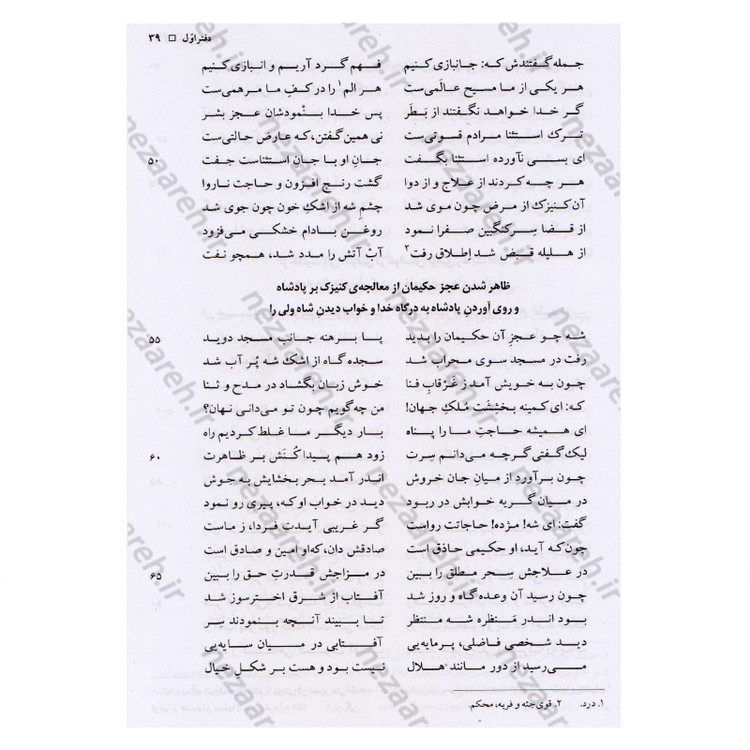 دفتر اوّل □ ۳۹
جمله گفتندش که: جانبازی کنیم فهم گرد آریم و انبازی کنیم
هر یکی از ما مسیح عالَمی‌ست هر الم۱ را در کفِ ما مرهمی‌ست
گر خدا خواهد نگفتند از بَطَر پس خدا بنْمودشان عجز بشر
ترک استثنا مرادم قسوتی‌ست نی همین گفتن، که عارض حالتی‌ست
ای بسی نآورده استثنا بگفت جانِ او با جان استثناست جفت ۵۰
هر چه کردند از علاج و از دوا گشت رنج افزون و حاجت ناروا
آن کنیزک از مرض چون موی شد چشمِ شه از اشکِ خون چون جوی شد
از قضا سِرکنگبین صفرا نمود روغن بادام خشکی می‌فزود
از هلیله قبض شد اِطلاق رفت۲ آبْ آتش را مدد شد، همچو نفت
ظاهر شدن عجز حکیمان از معالجه‌ی کنیزک بر پادشاه
و روی آوردنِ پادشاه به درگاه خدا و خواب دیدن شاه ولی را
شه چو عجزِ آن حکیمان را بدید پا برهنه جانب مسجد دوید ۵۵
رفت در مسجد سوی محراب شد سجده گاه از اشک شه پُر آب شد
چون به خویش آمد ز غَرْقابِ فنا خوش زبان بگشاد در مدح و ثنا
که: ای کمینه بخششت مُلکِ جهان! من چه گویم چون تو می‌دانی نهان؟
ای همیشه حاجتِ ما را پناه بار دیگر ما غلط کردیم راه
لیک گفتی گرچه می‌دانم سِرت زود هم پیدا کُنَش بر ظاهرت ۶۰
چون برآورد از میانِ جان خروش اندر آمد بحر بخشایش به جوش
در میان گریه خوابش در ربود دید در خواب او که، پیری رو نمود
گفت: ای شه! مژده! حاجاتت رواست گر غریبی آیدت فردا، ز ماست
چون‌که آید، او حکیمی حاذق است صادقش دان، که‌او امین و صادق است
در علاجش سِحر مطلق را ببین در مزاجش قدرتِ حق را ببین ۶۵
چون رسید آن وعده گاه و روز شد آفتاب از شرق اخترسوز شد
بود اندر مَنظره شه منتظر تا ببیند آنچه بنمودند سِر
دید شخصی فاضلی، پرمایه‌یی آفتابی در میان سایه‌یی
می‌رسید از دور مانند هلال نیست بود و هست بر شکلِ خیال
۱. درد. ۲. قوی‌جثه و فربه، محکم.
nezaareh.ir
nezaareh.ir
nezaareh.ir
nezaareh.ir
nezaareh.ir
nezaareh.ir
nezaareh.ir
nezaareh.ir
nezaareh.ir